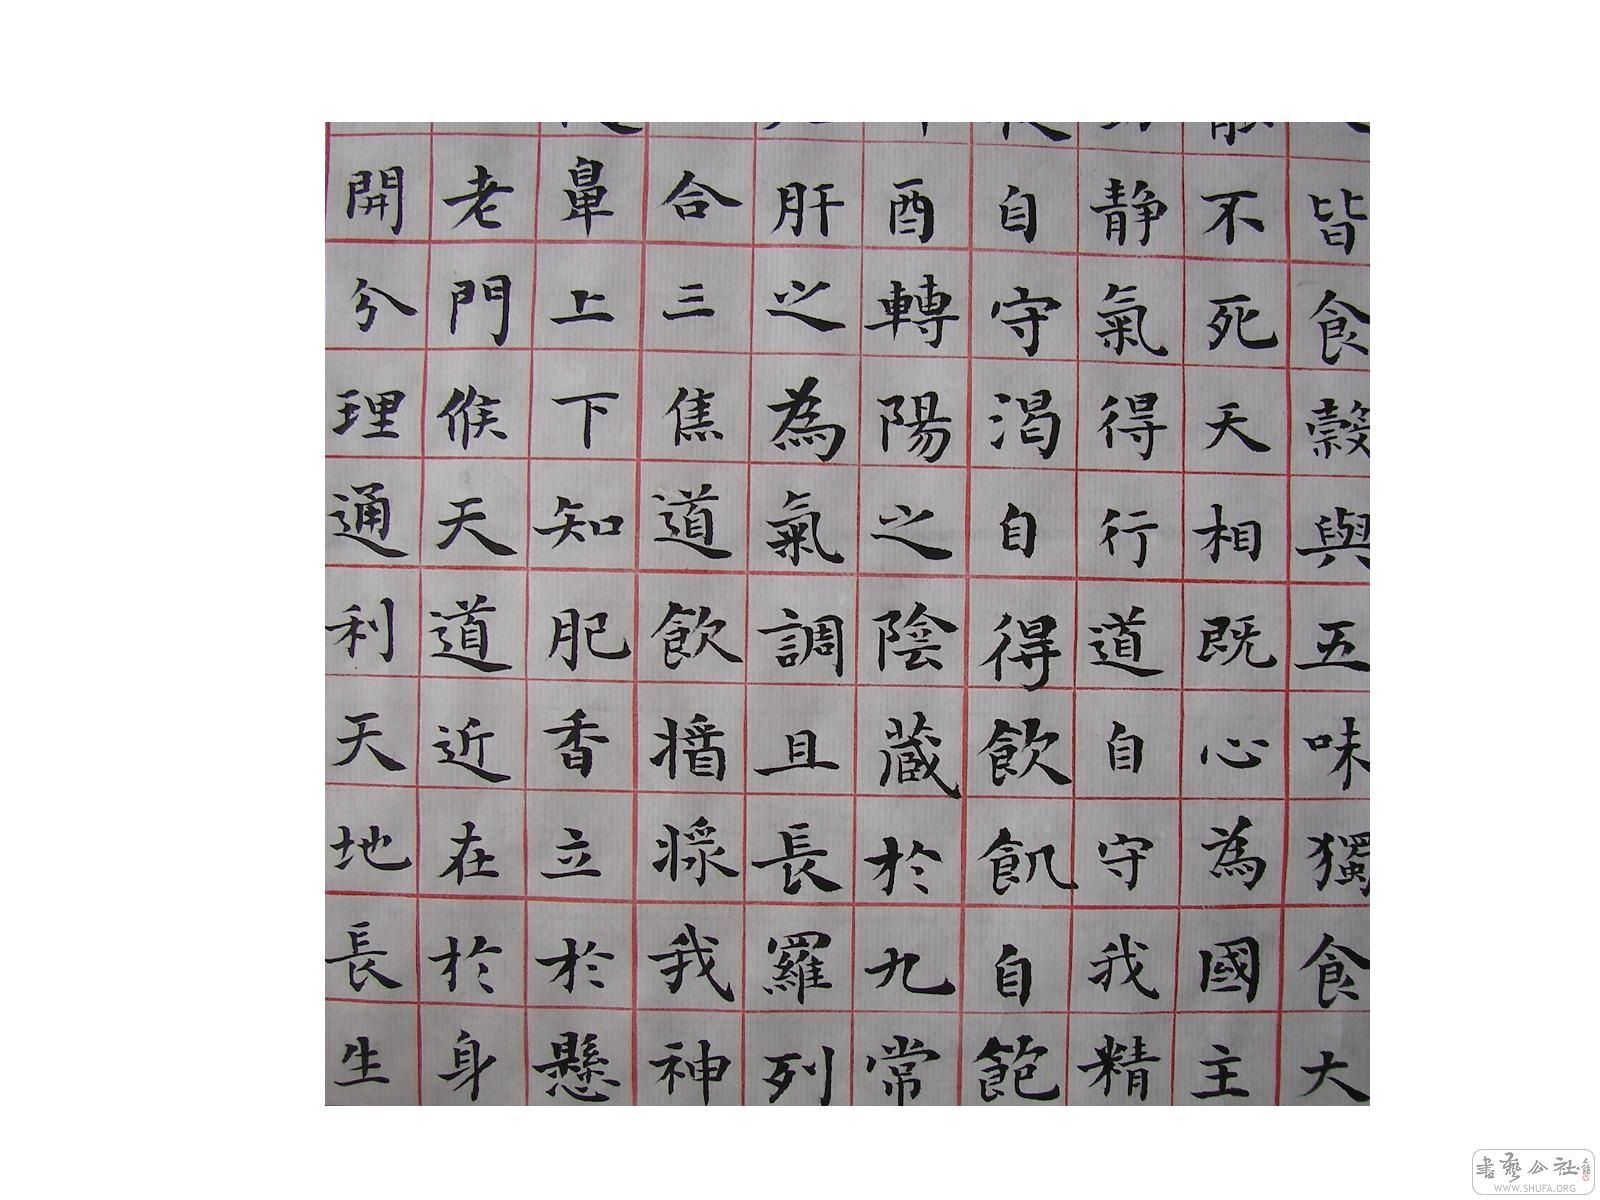 皆食穀與五味獨食大
不死天相既心為國主
静氣得行道自守我精
自守渴自得飲飢自飽
酉轉陽之陰藏於九常
肝之為氣調且長羅列
合三焦道飲牆將我神
上下知肥香立於懸
老門候天道近在於身
開分理通利天地長生
書藝公社
WWW.SHUFA.ORG